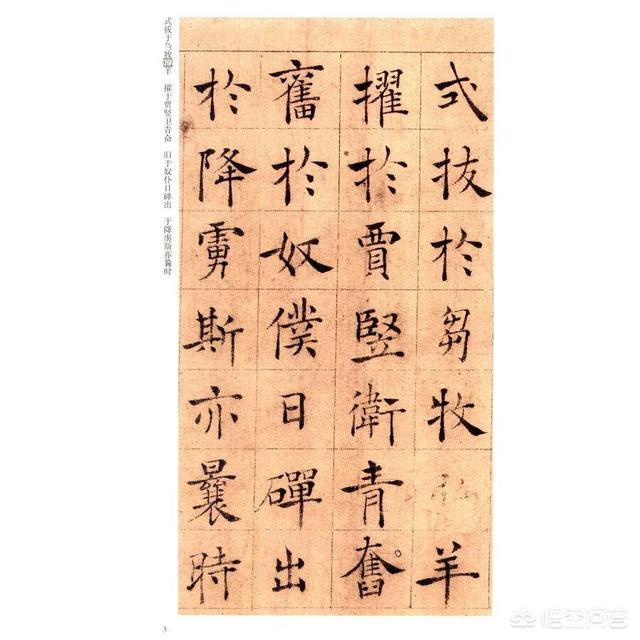 式拔於芻牧弘羊
擢於賈竪衛青奮
舊於奴僕日磾出
於降虜斯亦曩時
式拔于刍牧弘羊 擢于贾竖卫青奋 旧于奴仆日磾出 于降虏斯亦曩时
3
悟空问答